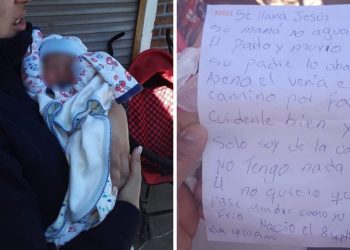 notas Se llama Jesús
Su mamá no aguen
El parto y murio
Su padre lo aba
Apena el venia e
camino por fa
Cuidenle bien y
Solo soy de la c
No Tengo nada
y no quiero qu
pase ambre como yo
Frio Nacio el